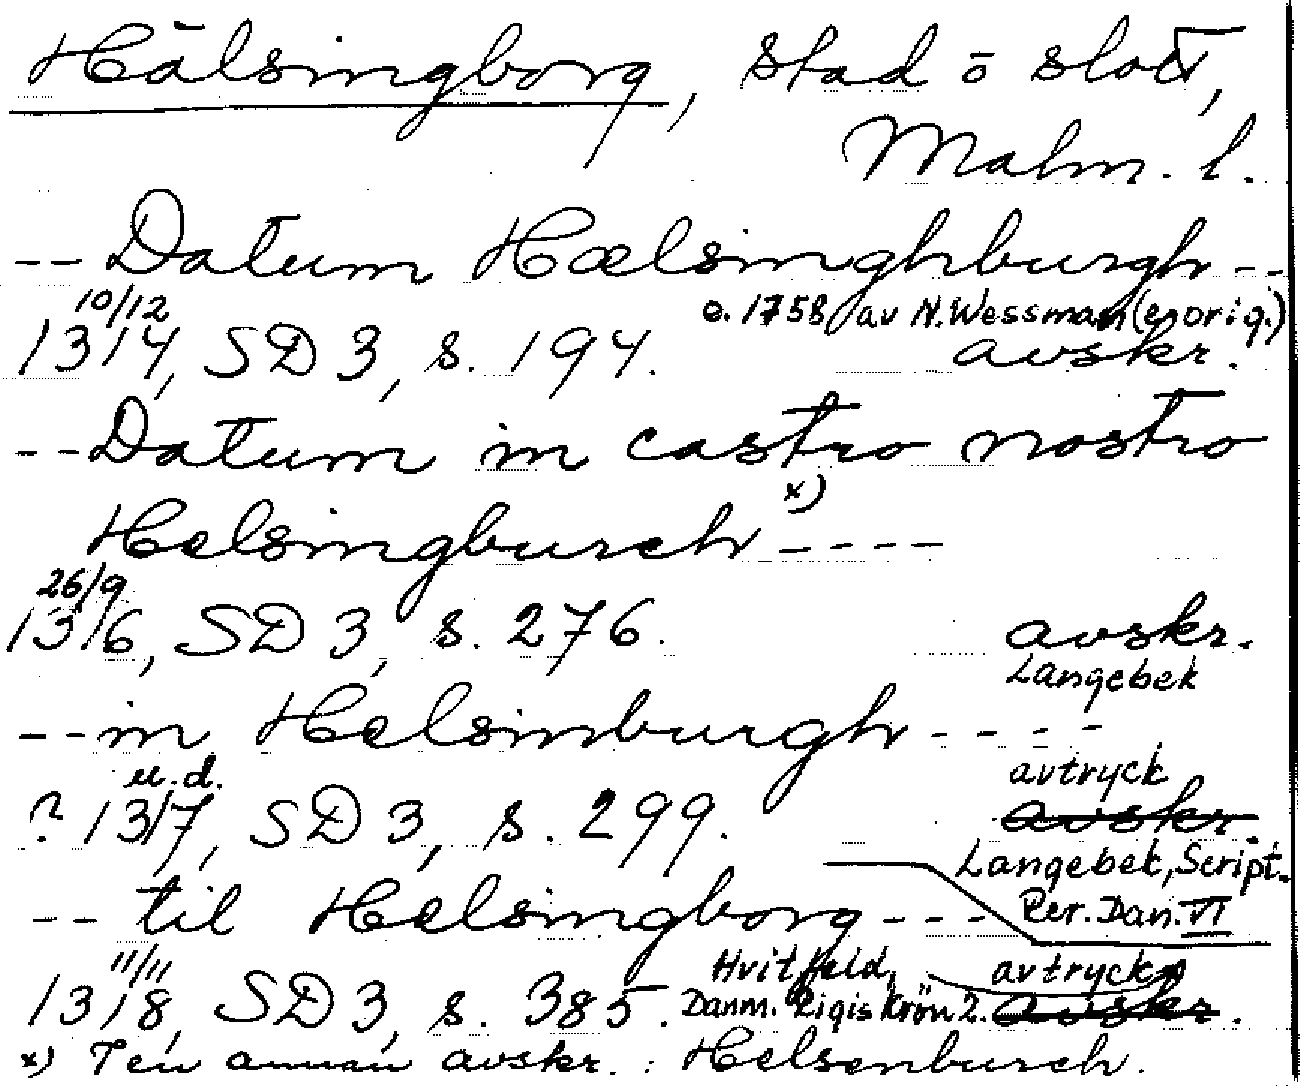 Hälsingborg, stad o slott,
Malm. l.
-- Datum Hælsinghburgh --
10/12 c. 1758 av N. Wessman (e. orig.)
1314, SD 3, s. 194. avskr.
-- Datum in castro nostro
x)
Helsingburch ----
26/9
1316, SD 3, s. 276. avskr.
Langebek
-- in Helsinburgh ----
u.d. avtryck
? 1317, SD 3, s. 299. avskr.
Langebek, Script.
-- til Helsingborg --- Rer. Dan. VI
11/11 Hvitfeld, avtryck
1318, SD 3, s. 385. Danm. Rigis Krön 2. avskr.
x) I en annan avskr. : Helsenburch.